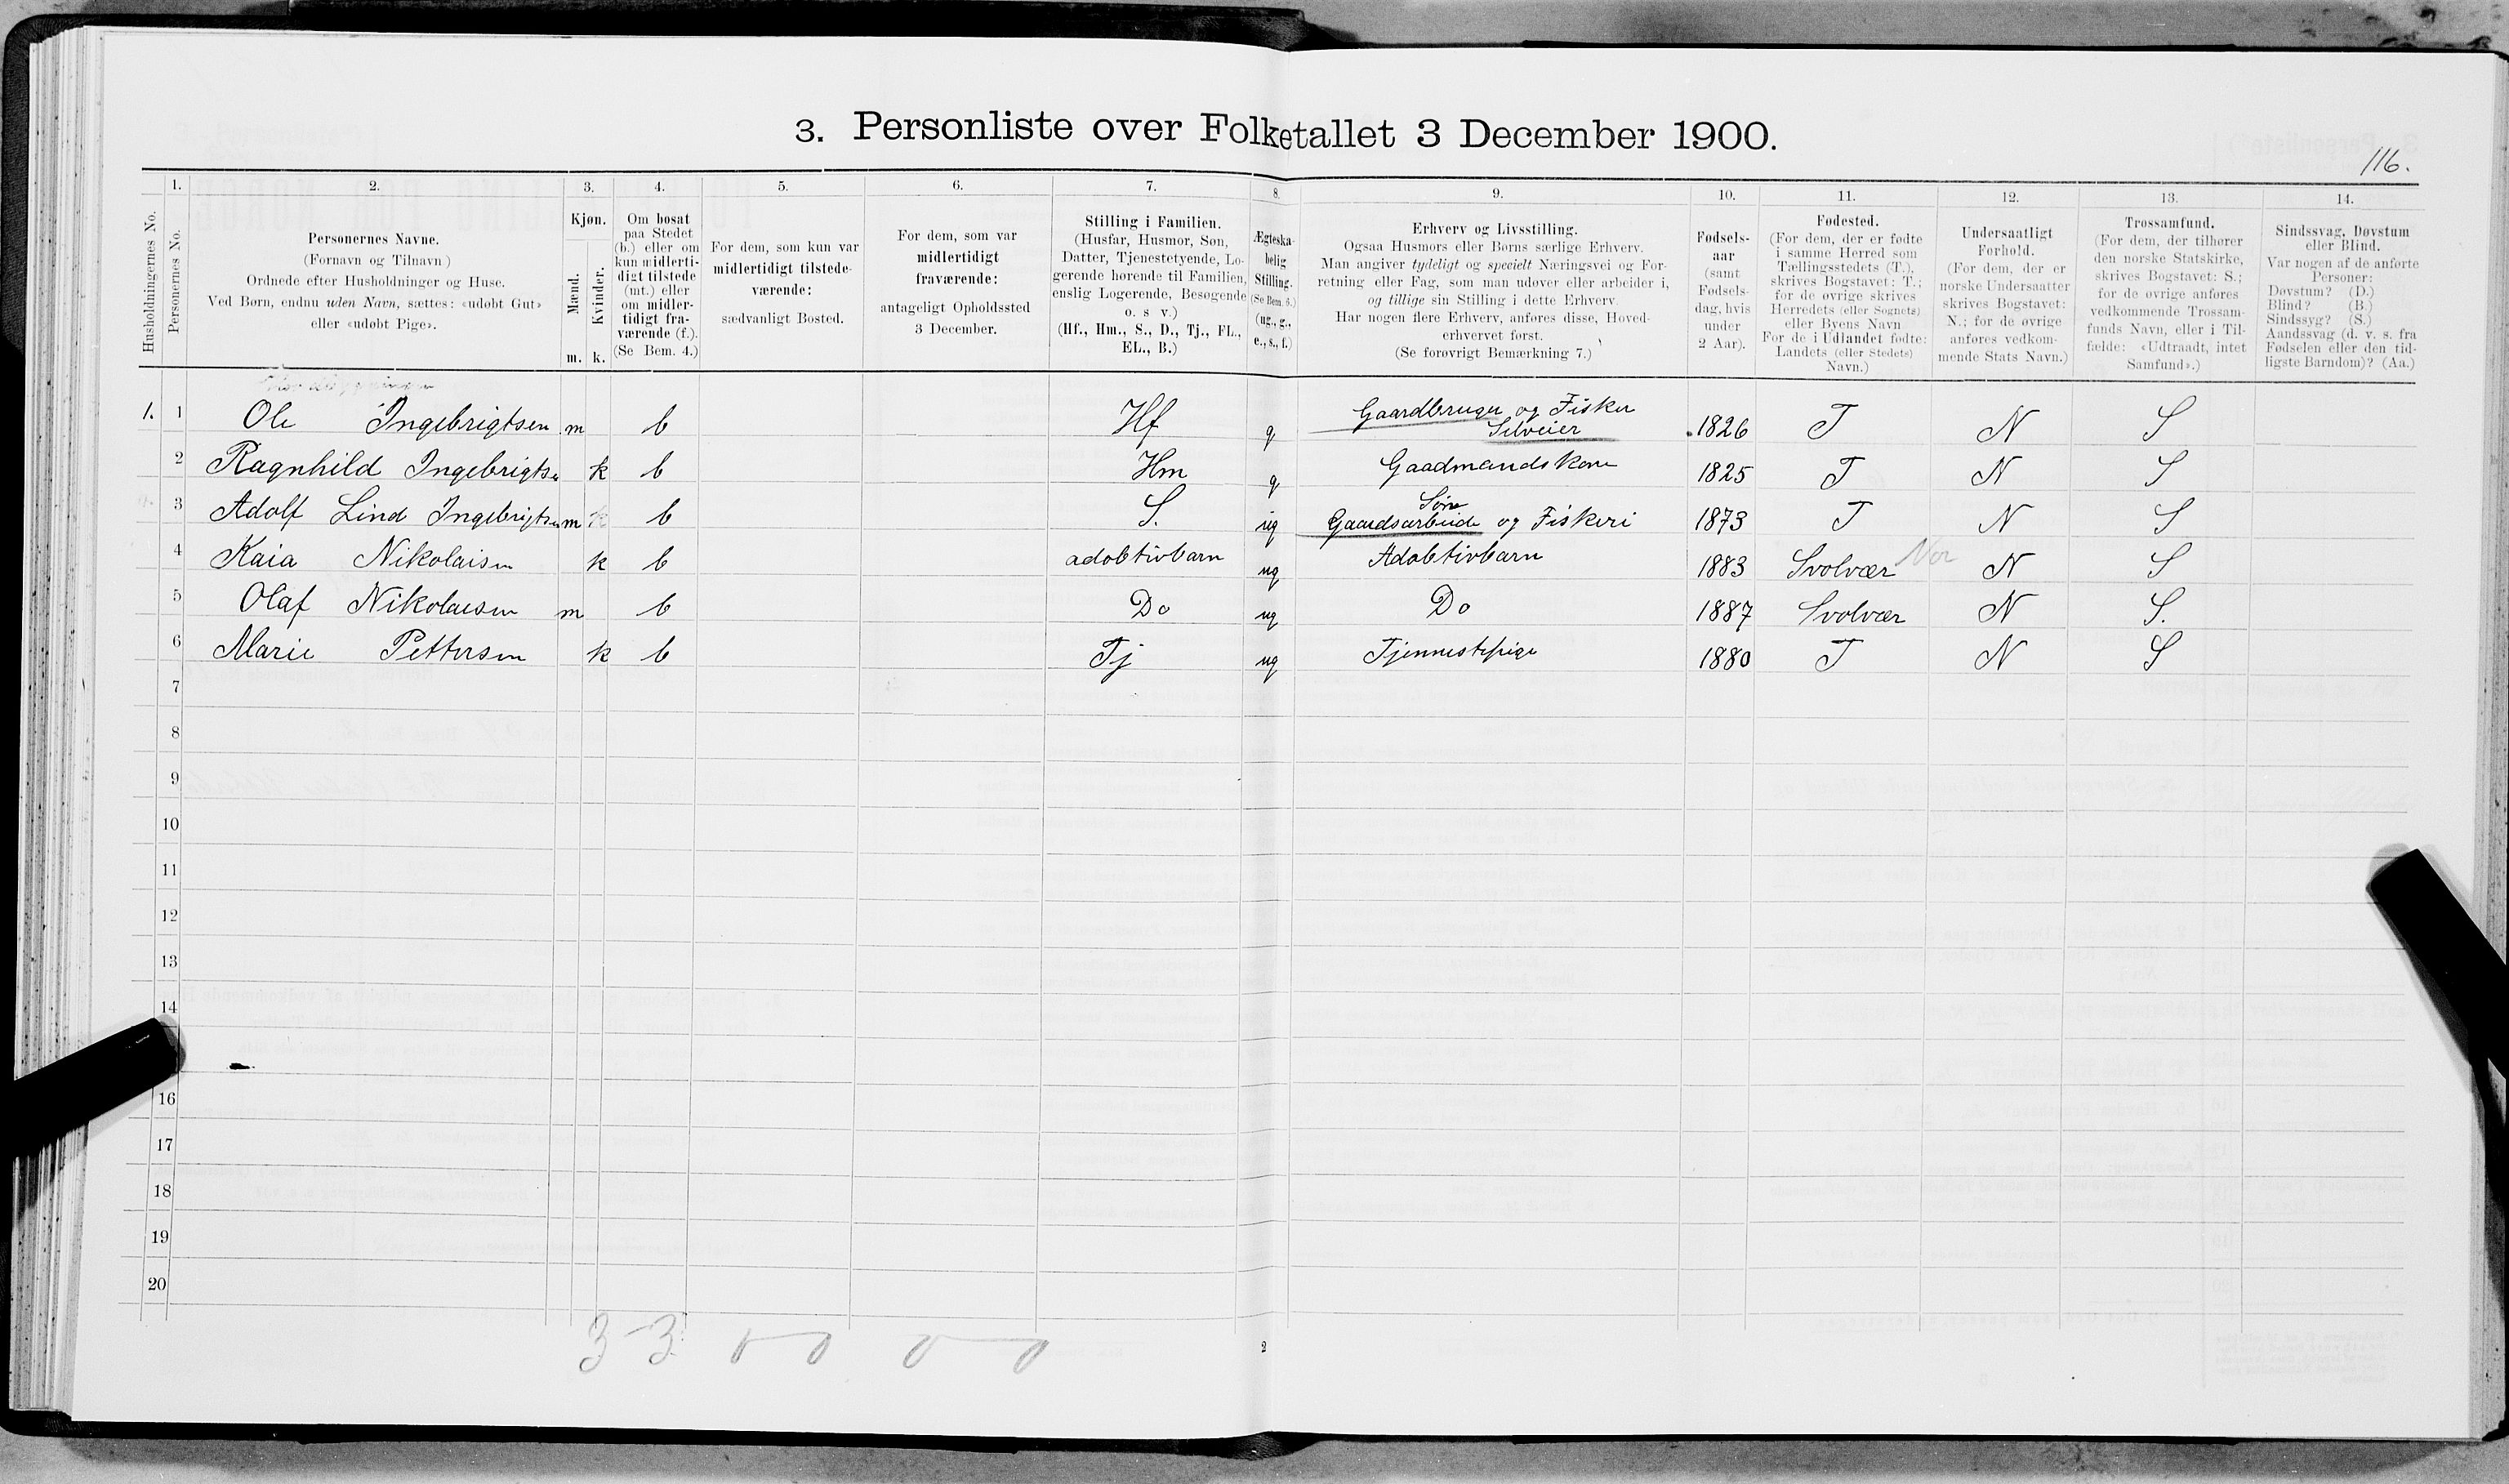 3. Personliste over Folketallet 3 December 1900.
116.
1. 2. 3. 4. 5. 6. 7. 8. 9. 10. 11. 12. 13. 14.
Husholdningernes No.
Personernes No.
Personernes Navne.
(Fornavn og Tilnavn)
Ordnede efter Husholdninger og Huse.
Ved Børn, endnu uden Navn, sættes: «udøbt Gut»
eller «udøbt Pige».
Kjøn.
Mænd.
Kvinder.
m. k.
Om bosat
paa Stedet
(b.) eller om
kun midlerti-
digt tilstede
(mt.) eller
om midler-
tidigt fra-
værende (f.).
(Se Bem. 4.)
For dem, som kun var
midlertidigt tilstede-
værende:
sædvanligt Bosted.
For dem, som var
midlertidigt
fraværende:
antageligt Opholdssted
3 December.
Stilling i Familien.
(Husfar, Husmor, Søn,
Datter, Tjenestetyende, Lo-
gerende hørende til Familien,
enslig Logerende, Besøgende
o. s v.)
(Hf., Hm., S., D., Tj., FL.,
EL., B.)
Ægteska-
belig
Stilling.
(Se Bem. 6.)
(ug., g.,
e., s., f.)
Erhverv og Livsstilling.
Ogsaa Husmors eller Børns særlige Erhverv.
Man angiver tydeligt og specielt Næringsvei og For-
retning eller Fag, som man udøver eller arbeider i,
og tillige sin Stilling i dette Erhverv.
Har nogen flere Erhverv, anføres disse, Hoved-
erhvervet først.
(Se forøvrigt Bemærkning 7.)
Fødsels-
aar
(samt
Fødsels-
dag, hvis
under
2 Aar).
Fødested.
(For dem, der er fødte
i samme Herred som
Tællingsstedets (T.),
skrives Bogstavet: T.;
for de øvrige skrives
Herredets (eller Sognets)
eller Byens Navn
For de i Udlandet fødte:
Landets (eller Stedets)
Navn.)
Undersaatligt
Forhold.
(For dem, der er
norske Undersaatter
skrives Bogstavet:
N.; for de øvrige
anføres vedkom-
mende Stats Navn.)
Trossamfund.
(For dem, der tilhører
den norske Statskirke,
skrives Bogstavet: S.;
for de øvrige anføres
vedkommende Trossam-
funds Navn, eller i Til-
fælde: «Udtraadt, intet
Samfund».)
Sindssvag, Døvstum
eller Blind.
Var nogen af de anførte
Personer:
Døvstum? (D.)
Blind? (B.)
Sindssyg? (S.)
Aandssvag (d. v. s. fra
Fødselen eller den tid-
ligste Barndom)? (Aa.)
1. 1 Ole Ingebrigtsen m b Hf g Gaardbruger og Fisker 1826 T N S
Selveier
2 Ragnhild Ingebrigts k b Hm g Gaadmandskone 1825 T N S
3 Adolf Lind Ingebrigtsen m k b S. ug Søn 1873 T N S
Gaardsarbeide og Fiskeri
4 Kaia Nikolaisen k b adobtivbarn ug Adobtivbarn 1883 Svolvær Nor N S
5 Olaf Nikolaisen m b Do ug Do 1887 Svolvær N S.
6 Marie Pettersen k b Tj ug Tjennestepige 1880 T N S
7
8
9
10
11
12
13
14
16
17
18
19
20
3 3 0 0 0 0
2